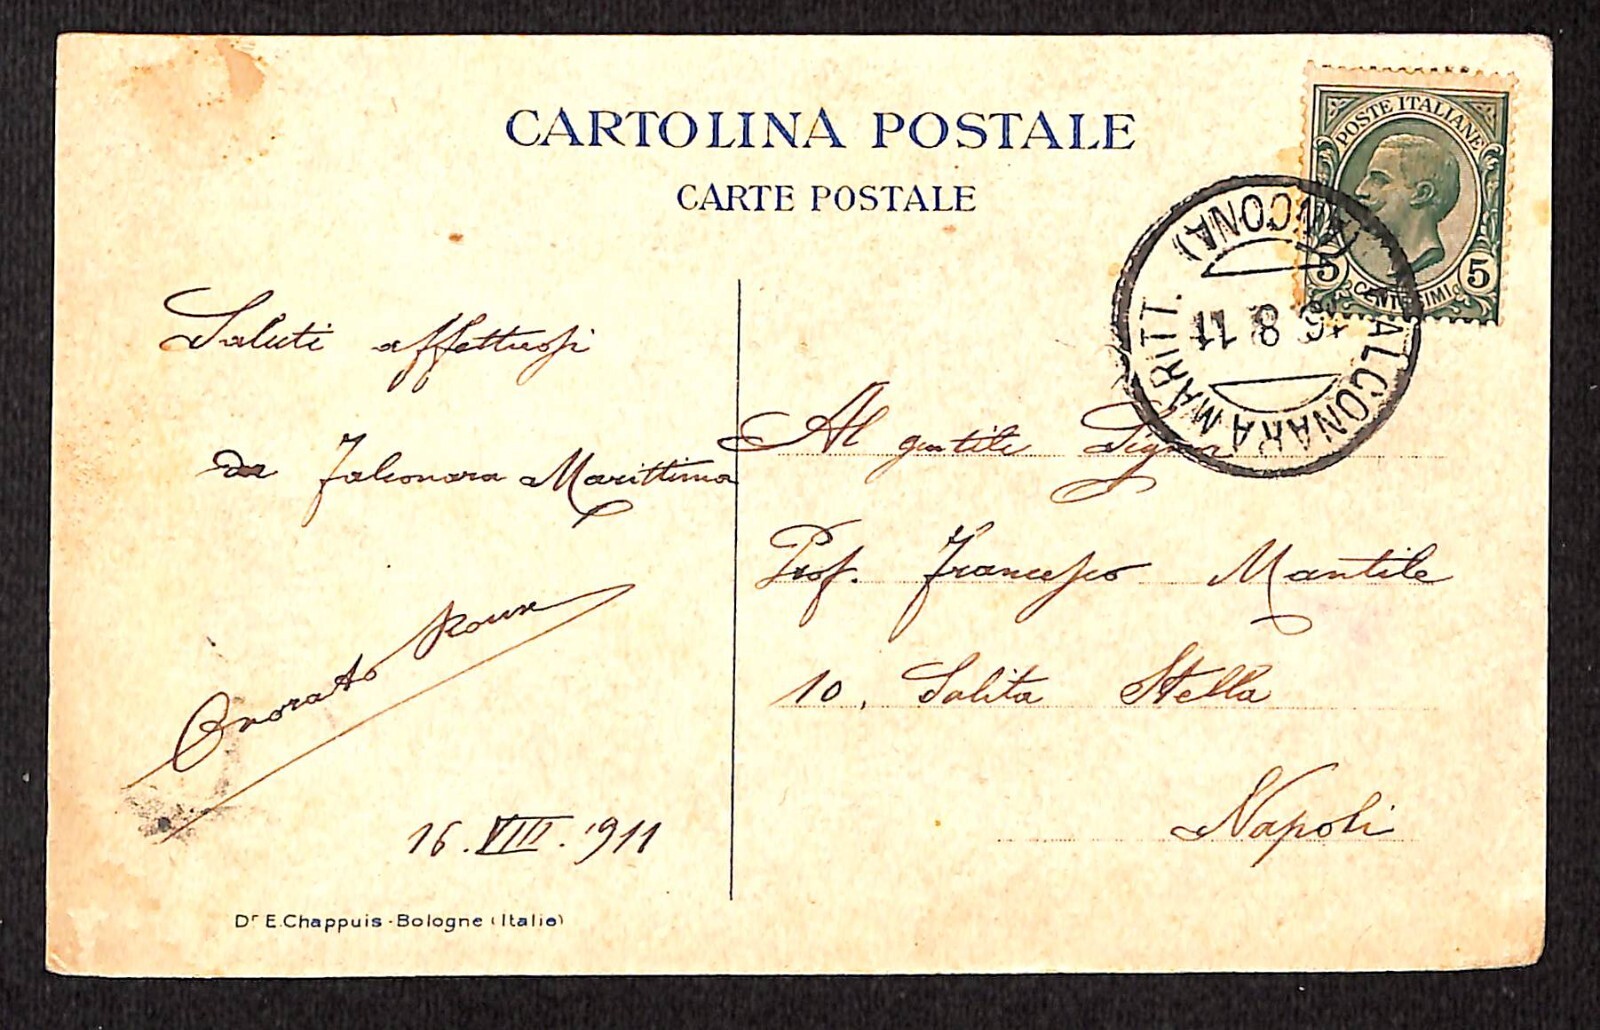 CARTOLINA POSTALE
CARTE POSTALE
POSTE ITALIANE
5 CENTESIMI 5
FALCONARA MARITT.
(ANCONA)
16 8 11
Saluti affettuosi
da Falconara Marittima
Onorato Roux
16. VIII. 1911
Al gentile Signor
Prof. Francesco Mantile
10, Salita Stella
Napoli
Dr E. Chappuis - Bologne (Italie)